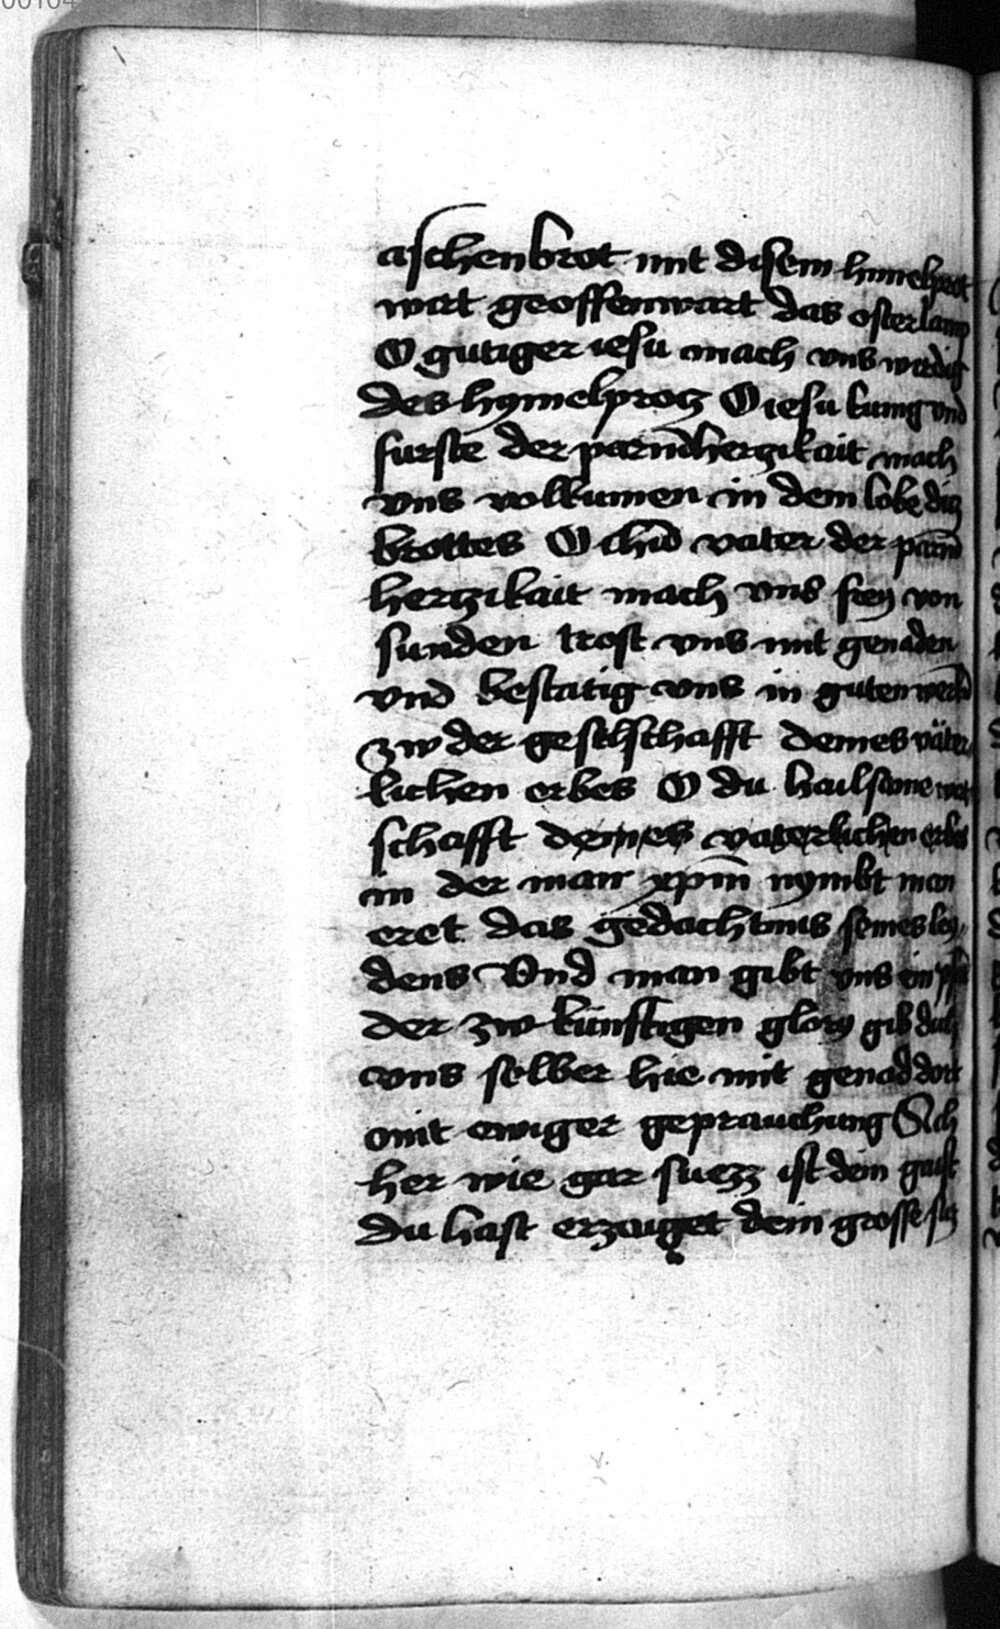 00104
aschenbrot mit disem himelprot
wirt geoffenwart das osterlamp
O gutiger iesu mach vns wirdig
des hymelprotz O iesu kunig vnd
furste der parmhergikait mach
vns volkumen in dem lobe dis
brottes O vater der parm
hertzikait mach vns frey von
sunden trost vns mit genaden
vnd bestatig vns in guten
zw der geselschafft deines väter
lichen erbes O du hailsame wirt
schafft deines vaterlichen erbs
in der man xpm nymbt man
eret das gedachtnus seines ley
dens Vnd man gibt vns ein
der zw künftigen glory gib dich
vns selber hie mit genad dort
mit ewiger geprauchung Sich
her wie gar suezz ist dein gaist
du hast erzaiget dein grosse